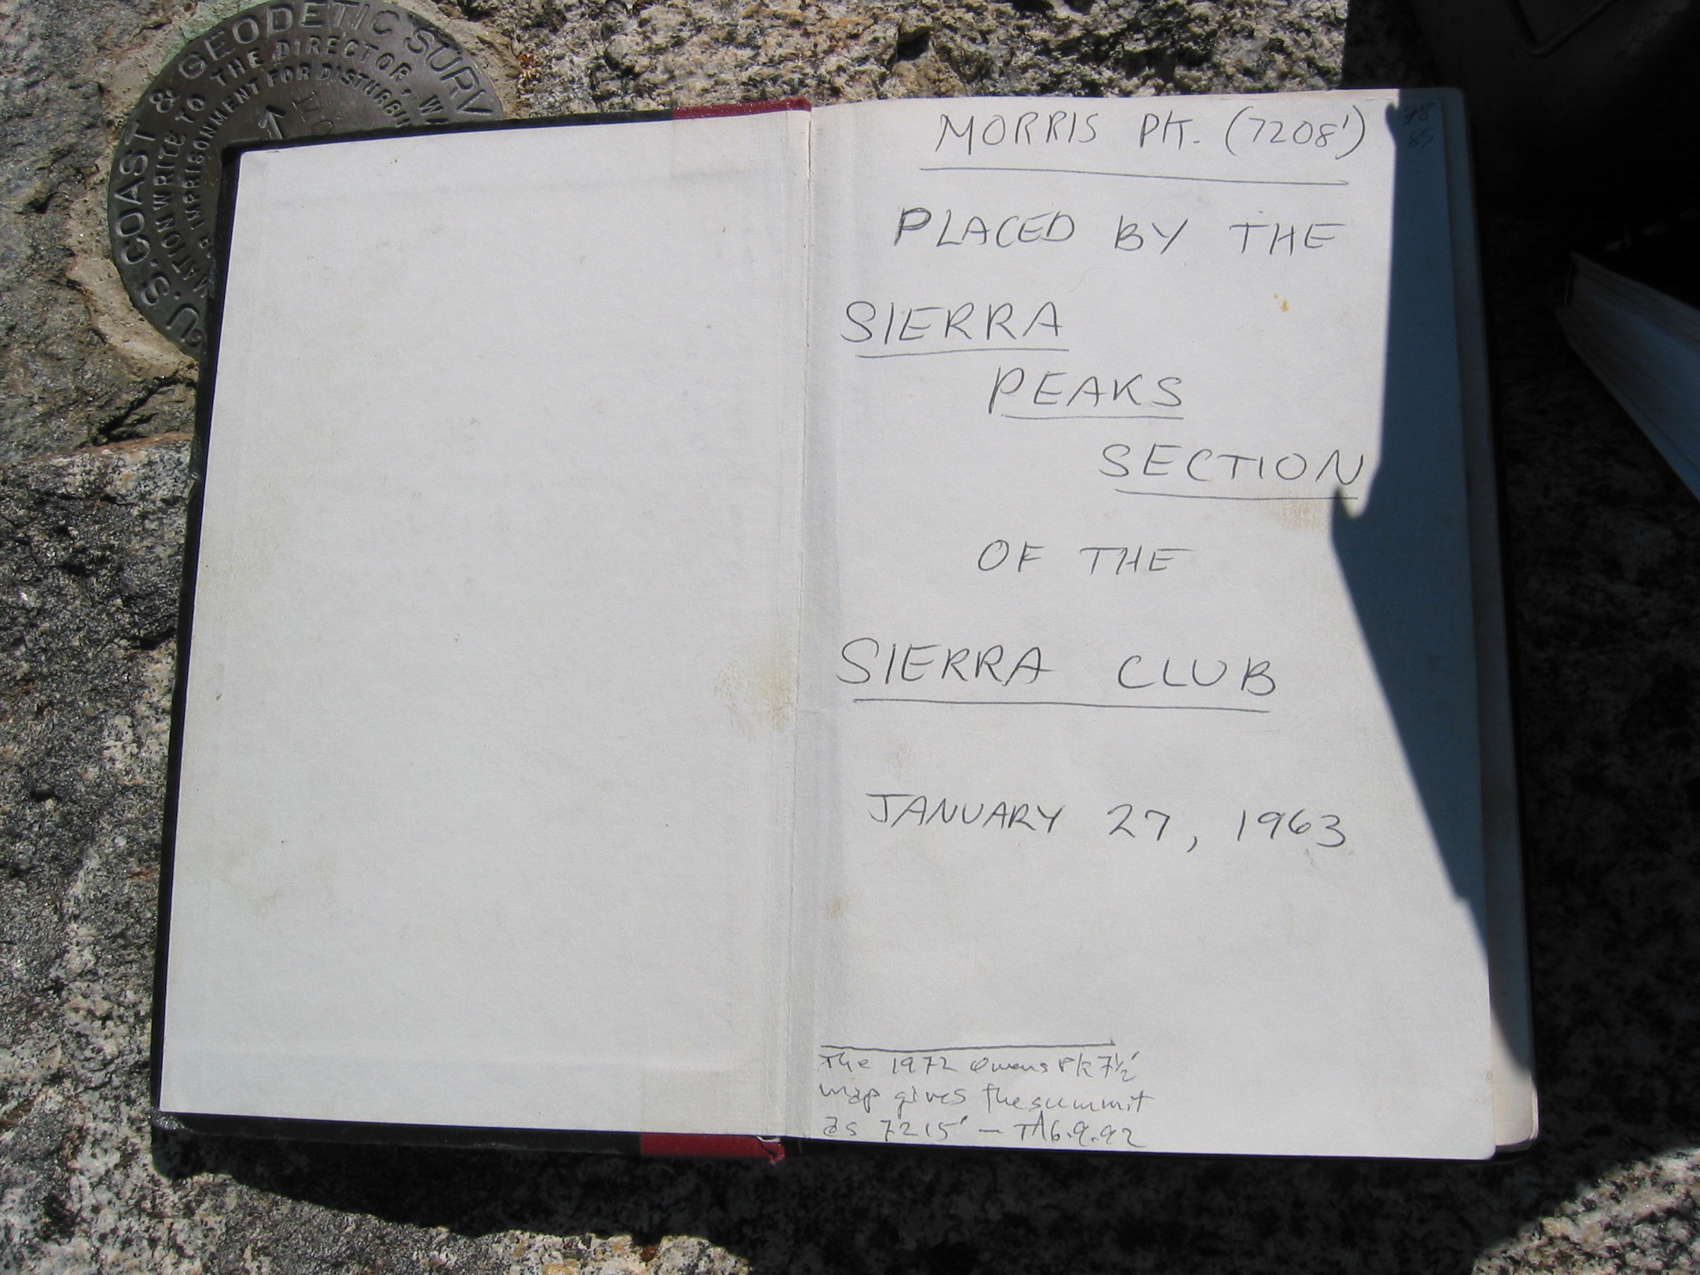 U.S. COAST & GEODETIC SURV
NATION WRITE TO THE DIRECTOR, WA
IMPRISONMENT FOR DISTURBI
MORRIS PK. (7208')
PLACED BY THE
SIERRA
PEAKS
SECTION
OF THE
SIERRA CLUB
JANUARY 27, 1963
The 1972 Owens Pk 7½'
map gives the summit
as 7215' — 6.9.92